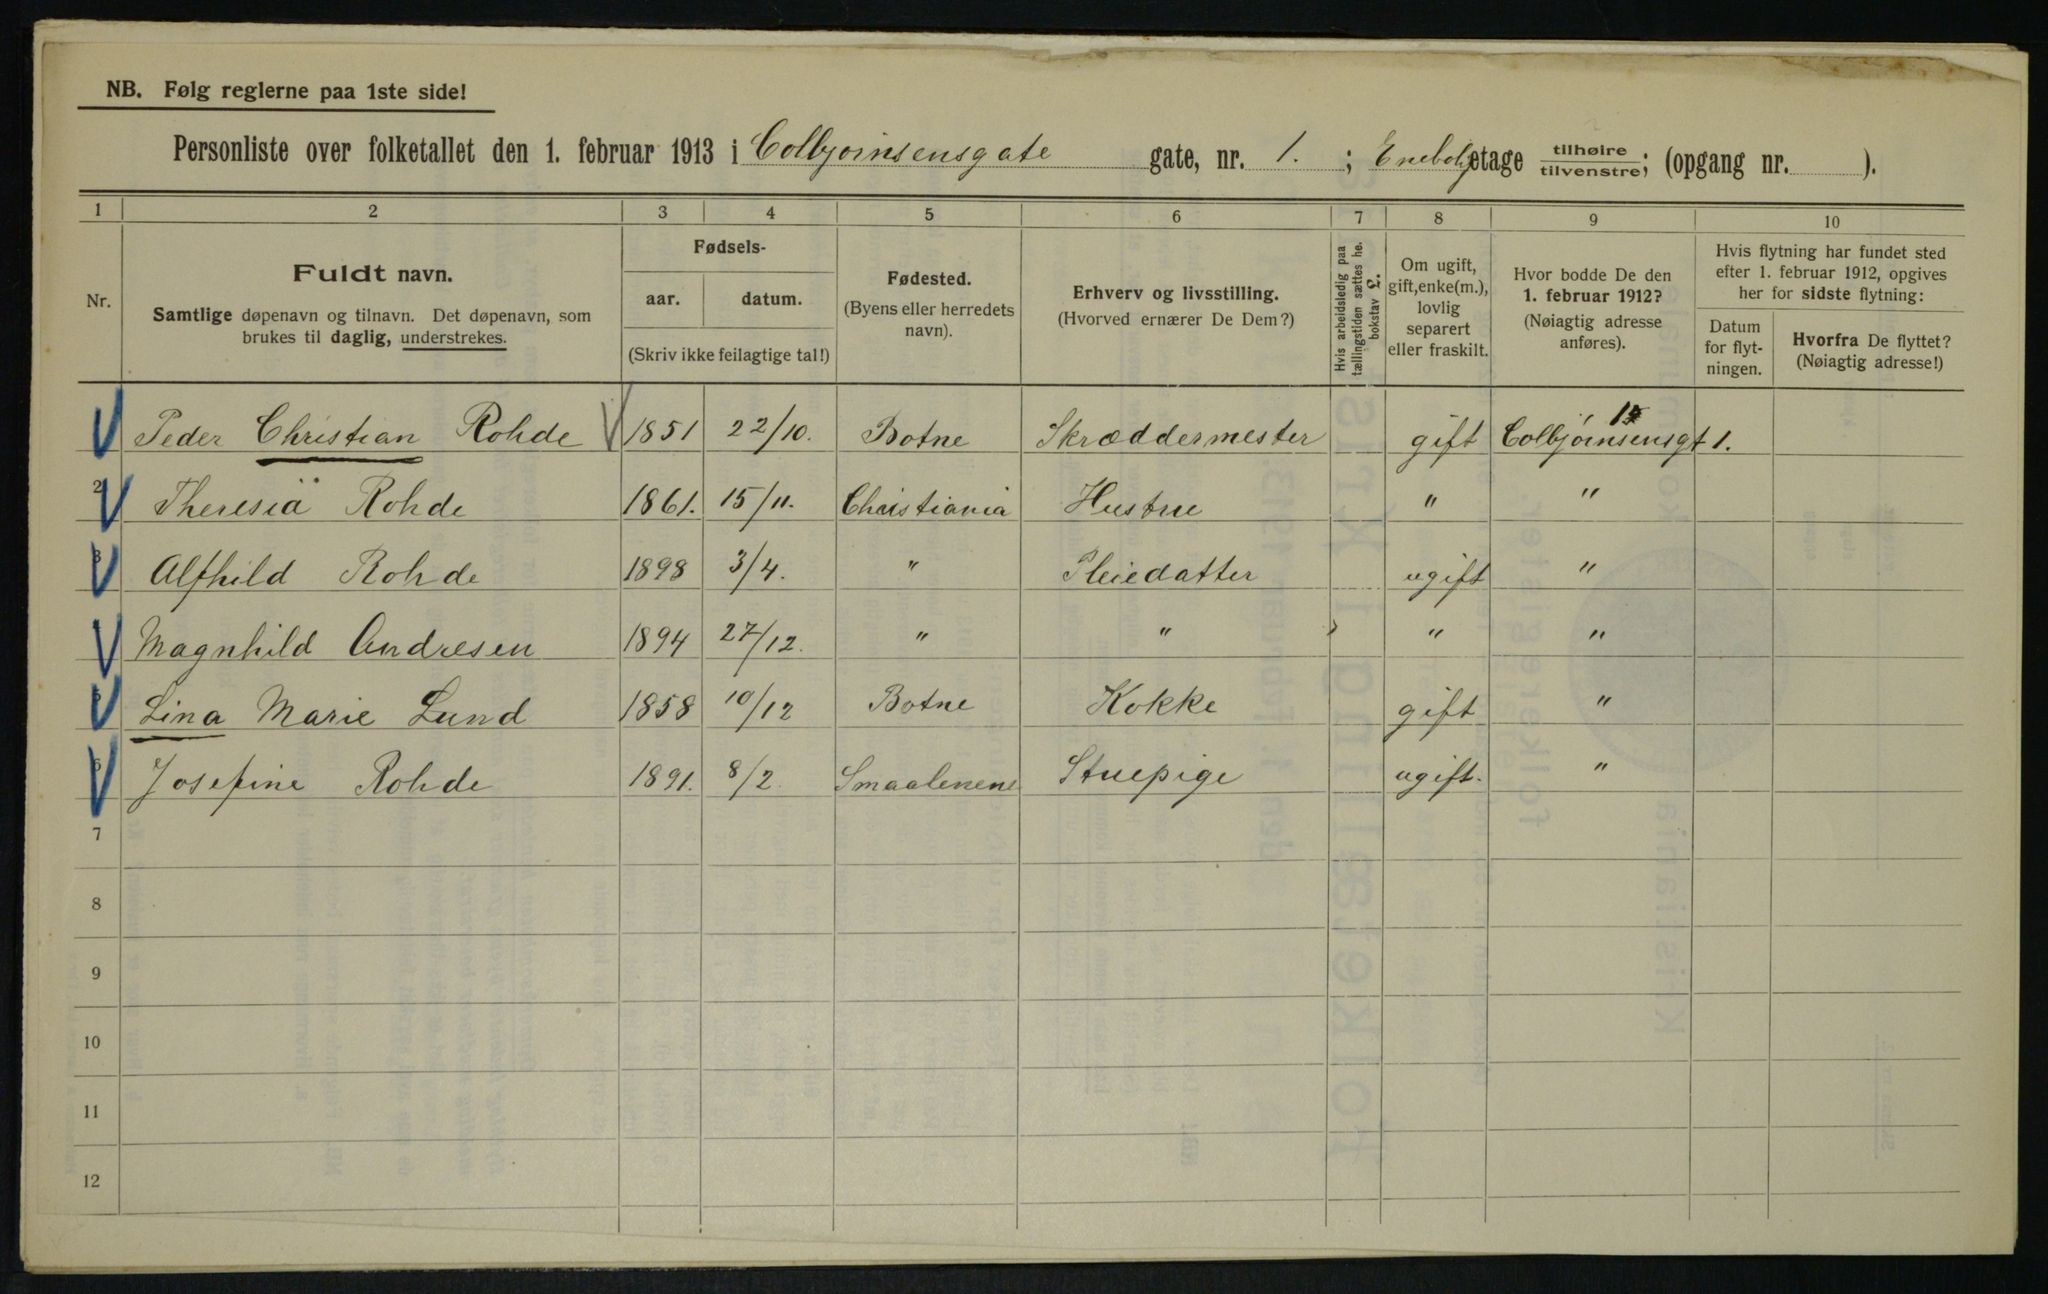 NB. Følg reglerne paa 1ste side!
Personliste over folketallet den 1. februar 1913 i Colbjørnsensgate gate, nr. 1. ; Enebol etage tilhøire/tilvenstre; (opgang nr. ).
1 2 3 4 5 6 7 8 9 10
Nr.
Fuldt navn.
Samtlige døpenavn og tilnavn. Det døpenavn, som
brukes til daglig, understrekes.
Fødsels-
aar. datum.
(Skriv ikke feilagtige tal!)
Fødested.
(Byens eller herredets
navn).
Erhverv og livsstilling.
(Hvorved ernærer De Dem?)
Hvis arbeidsledig paa
tællingstiden sættes he.
bokstav L.
Om ugift,
gift, enke(m.),
lovlig
separert
eller fraskilt.
Hvor bodde De den
1. februar 1912?
(Nøiagtig adresse
anføres).
Hvis flytning har fundet sted
efter 1. februar 1912, opgives
her for sidste flytning:
Datum
for flyt-
ningen.
Hvorfra De flyttet?
(Nøiagtig adresse!)
Peder Christian Rohde 1851 22/10. Botne Skræddermester gift Colbjørnsensgt 1.
2 Theresia Rohde 1861. 15/11. Christiania Hustru " "
3 Alfhild Rohde 1898 3/4. " Pleiedatter ugift "
Magnhild Andresen 1894 27/12. " " " "
5 Lina Marie Lund 1858 10/12 Botne Kokke gift "
6 Josefine Rohde 1891. 8/2 Smaalenene Stuepige ugift. "
7
8
9
10
11
12